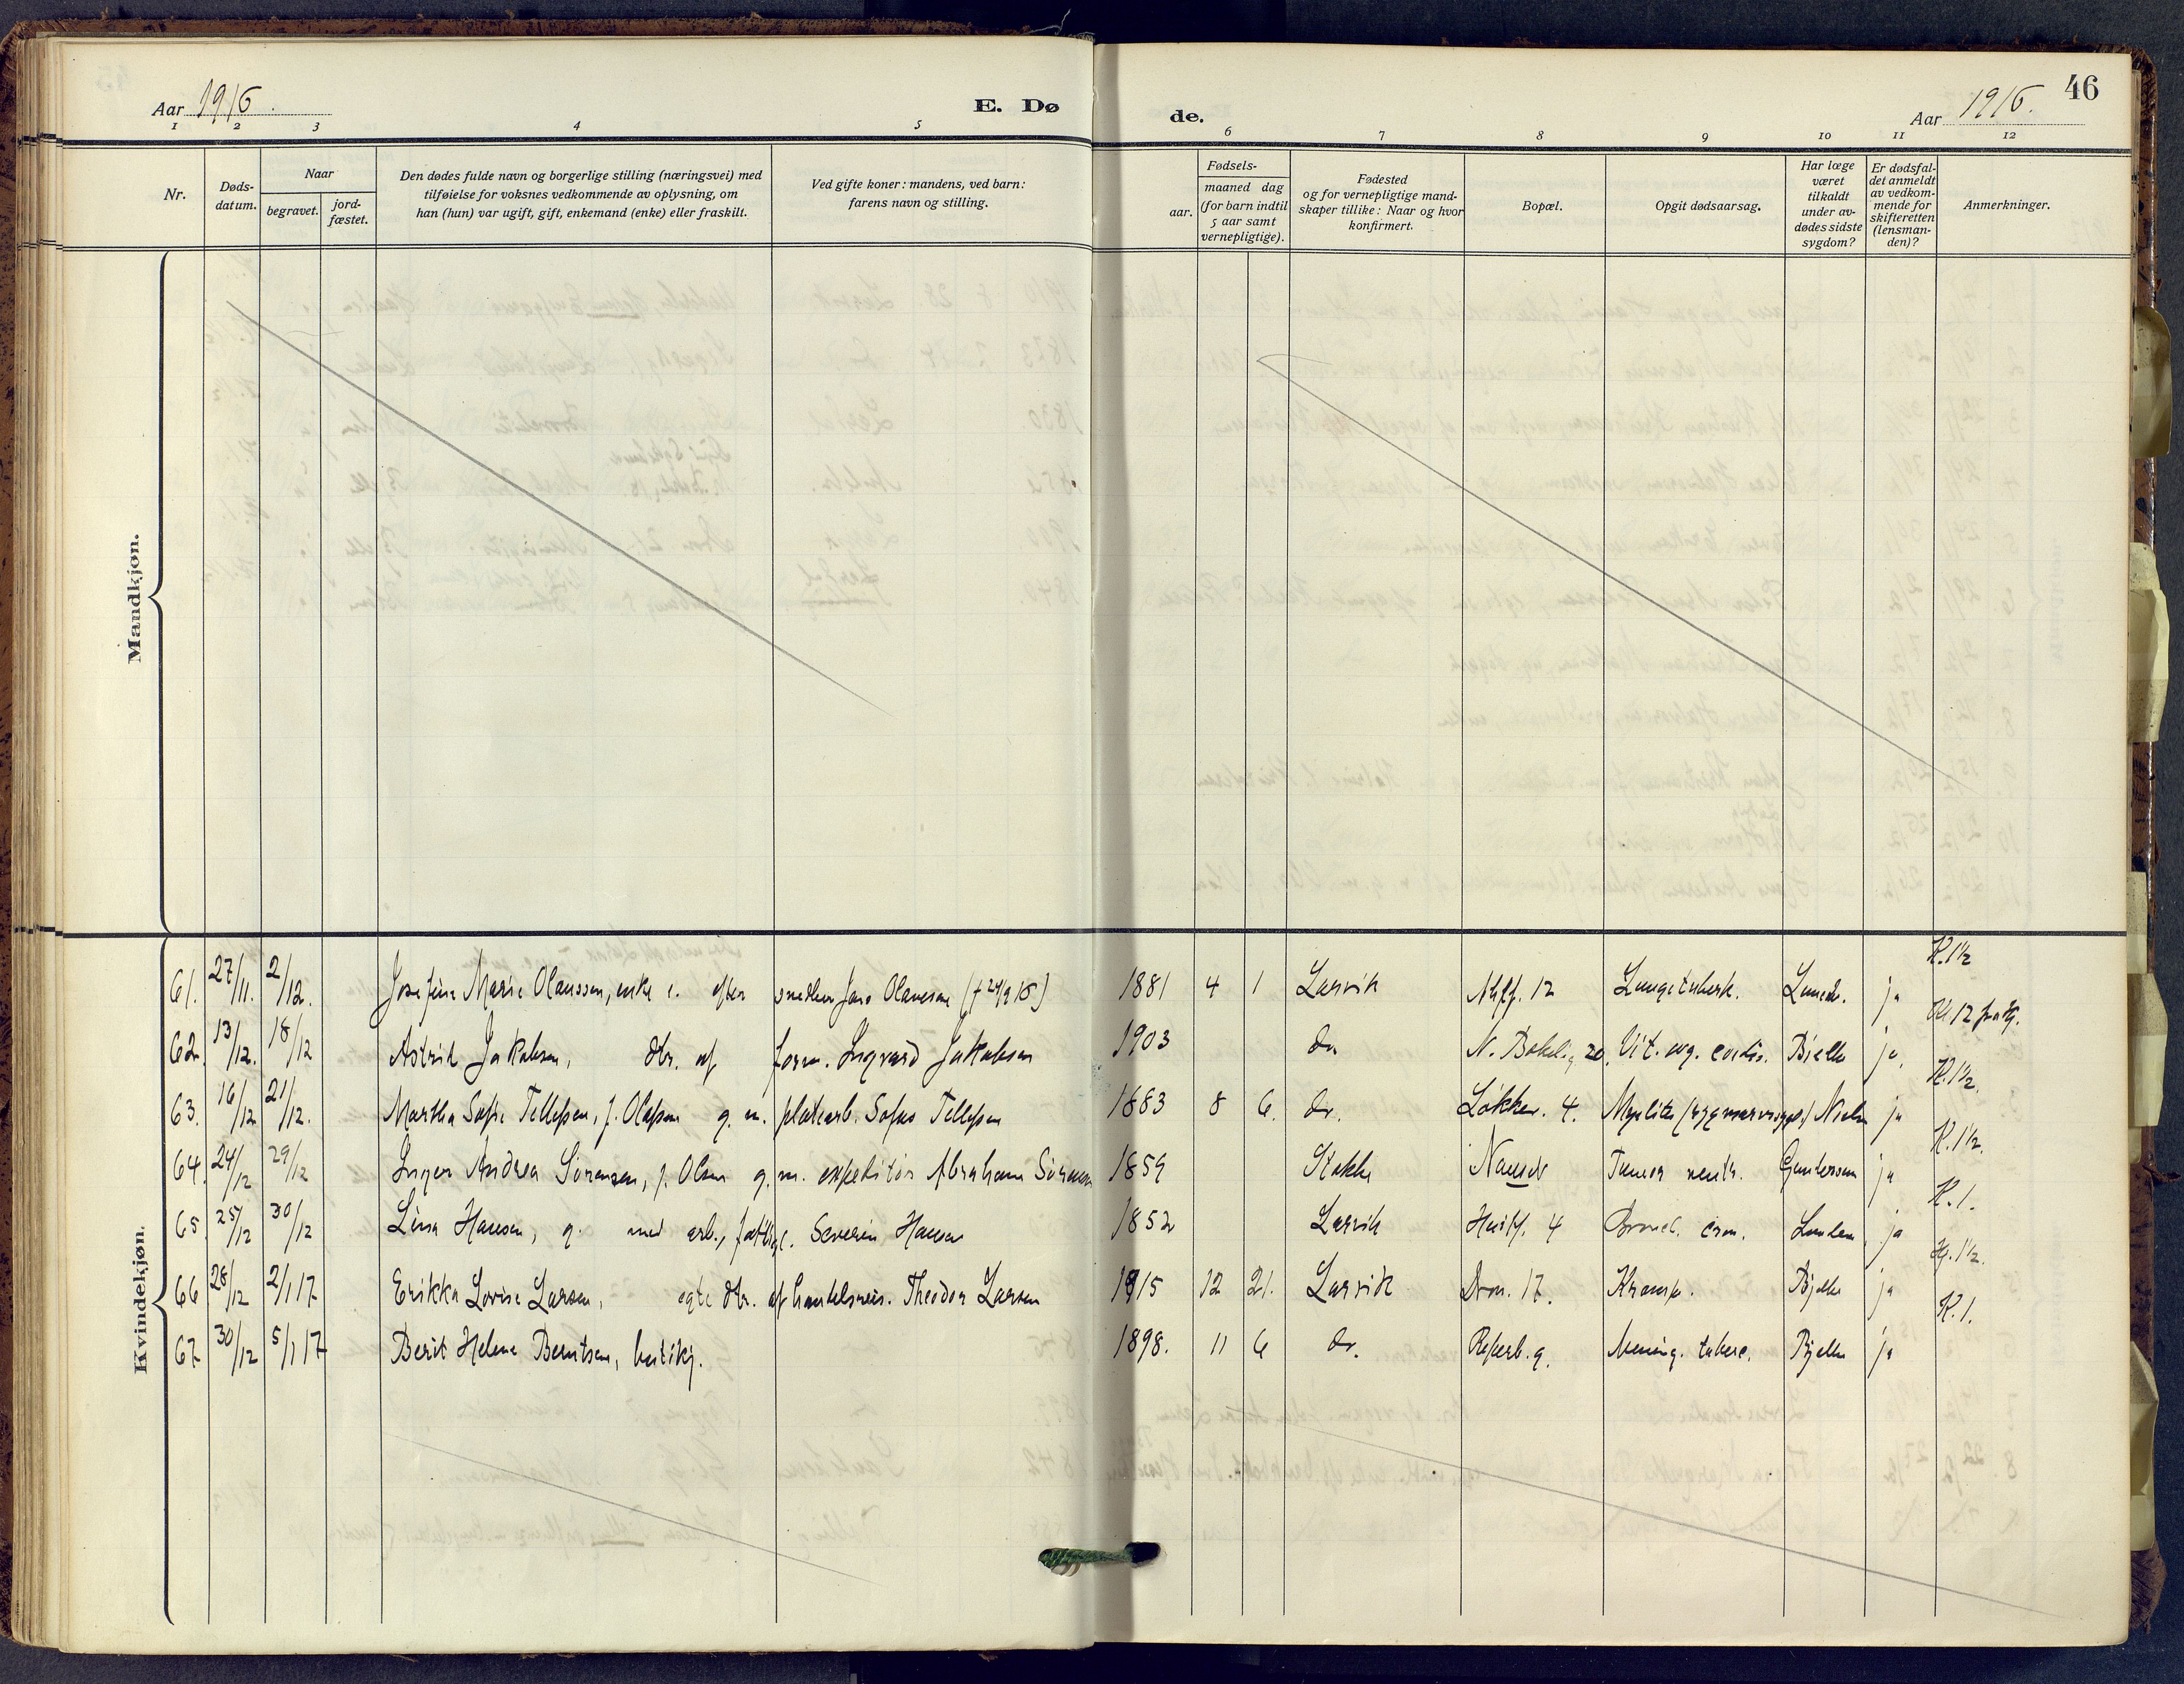 46
Aar 1916. E. Dø de. Aar 1916.
1 2 3 4 5 6 7 8 9 10 11 12
Nr.
Døds-
datum.
Naar
begravet.
jord-
fæstet.
Den dødes fulde navn og borgerlige stilling (næringsvei) med
tilføielse for voksnes vedkommende av oplysning, om
han (hun) var ugift, gift, enkemand (enke) eller fraskilt.
Ved gifte koner: mandens, ved barn:
farens navn og stilling.
Fødsels-
aar.
maaned dag
(for barn indtil
5 aar samt
vernepligtige).
Fødested
og for vernepligtige mand-
skaper tillike: Naar og hvor
konfirmert.
Bopæl.
Opgit dødsaarsag.
Har læge
været
tilkaldt
under av-
dødes sidste
sygdom?
Er dødsfal-
det anmeldt
av vedkom-
mende for
skifteretten
(lensman-
den)?
Anmerkninger.
Mandkjøn.
Kvindekjøn.
61. 27/11. 2/12. Josefine Marie Olaussen, enke e. efter Jens 1881 4 1 Larvik 12 ja K. 1½
62. 13/12. 18/12 Astrid Jakobsen, dtr. af form. Ingvard Jakobsen 1903 do. N. 20. Vit. org. cordis. Bjelke ja. fratg.
63. 16/12 21/12. Martha Sofie Tellefsen, f. Olafsen g. m. platearb. Sofus Tellefsen 1883 8 6. do. Løkker. 4. ja K. 1½.
64. 24/12 29/12 Inger Andrea Sørensen, f. Olsen g. m. expeditør Abraham Sørensen 1859 Stokke Tumor ventr. Gundersen ja K. 1½.
65. 25/12 30/12 Lina Hansen, g. med arb., fattigl. Severin Hansen 1852 Larvik 4 ja K. 1.
66 28/12 2/1 17 Erikka Lovise Larsen, egte dtr. af handelsreis. Theodor Larsen 1915 12 21. Larvik Dron. 17. Krampe. Bjelke ja 1½.
67 30/12 5/1 17 Berit Helene Berntsen, butikj. 1898. 11 6 do. Reperb. 9. Mening. tuberc. Bjelke ja K. 1.